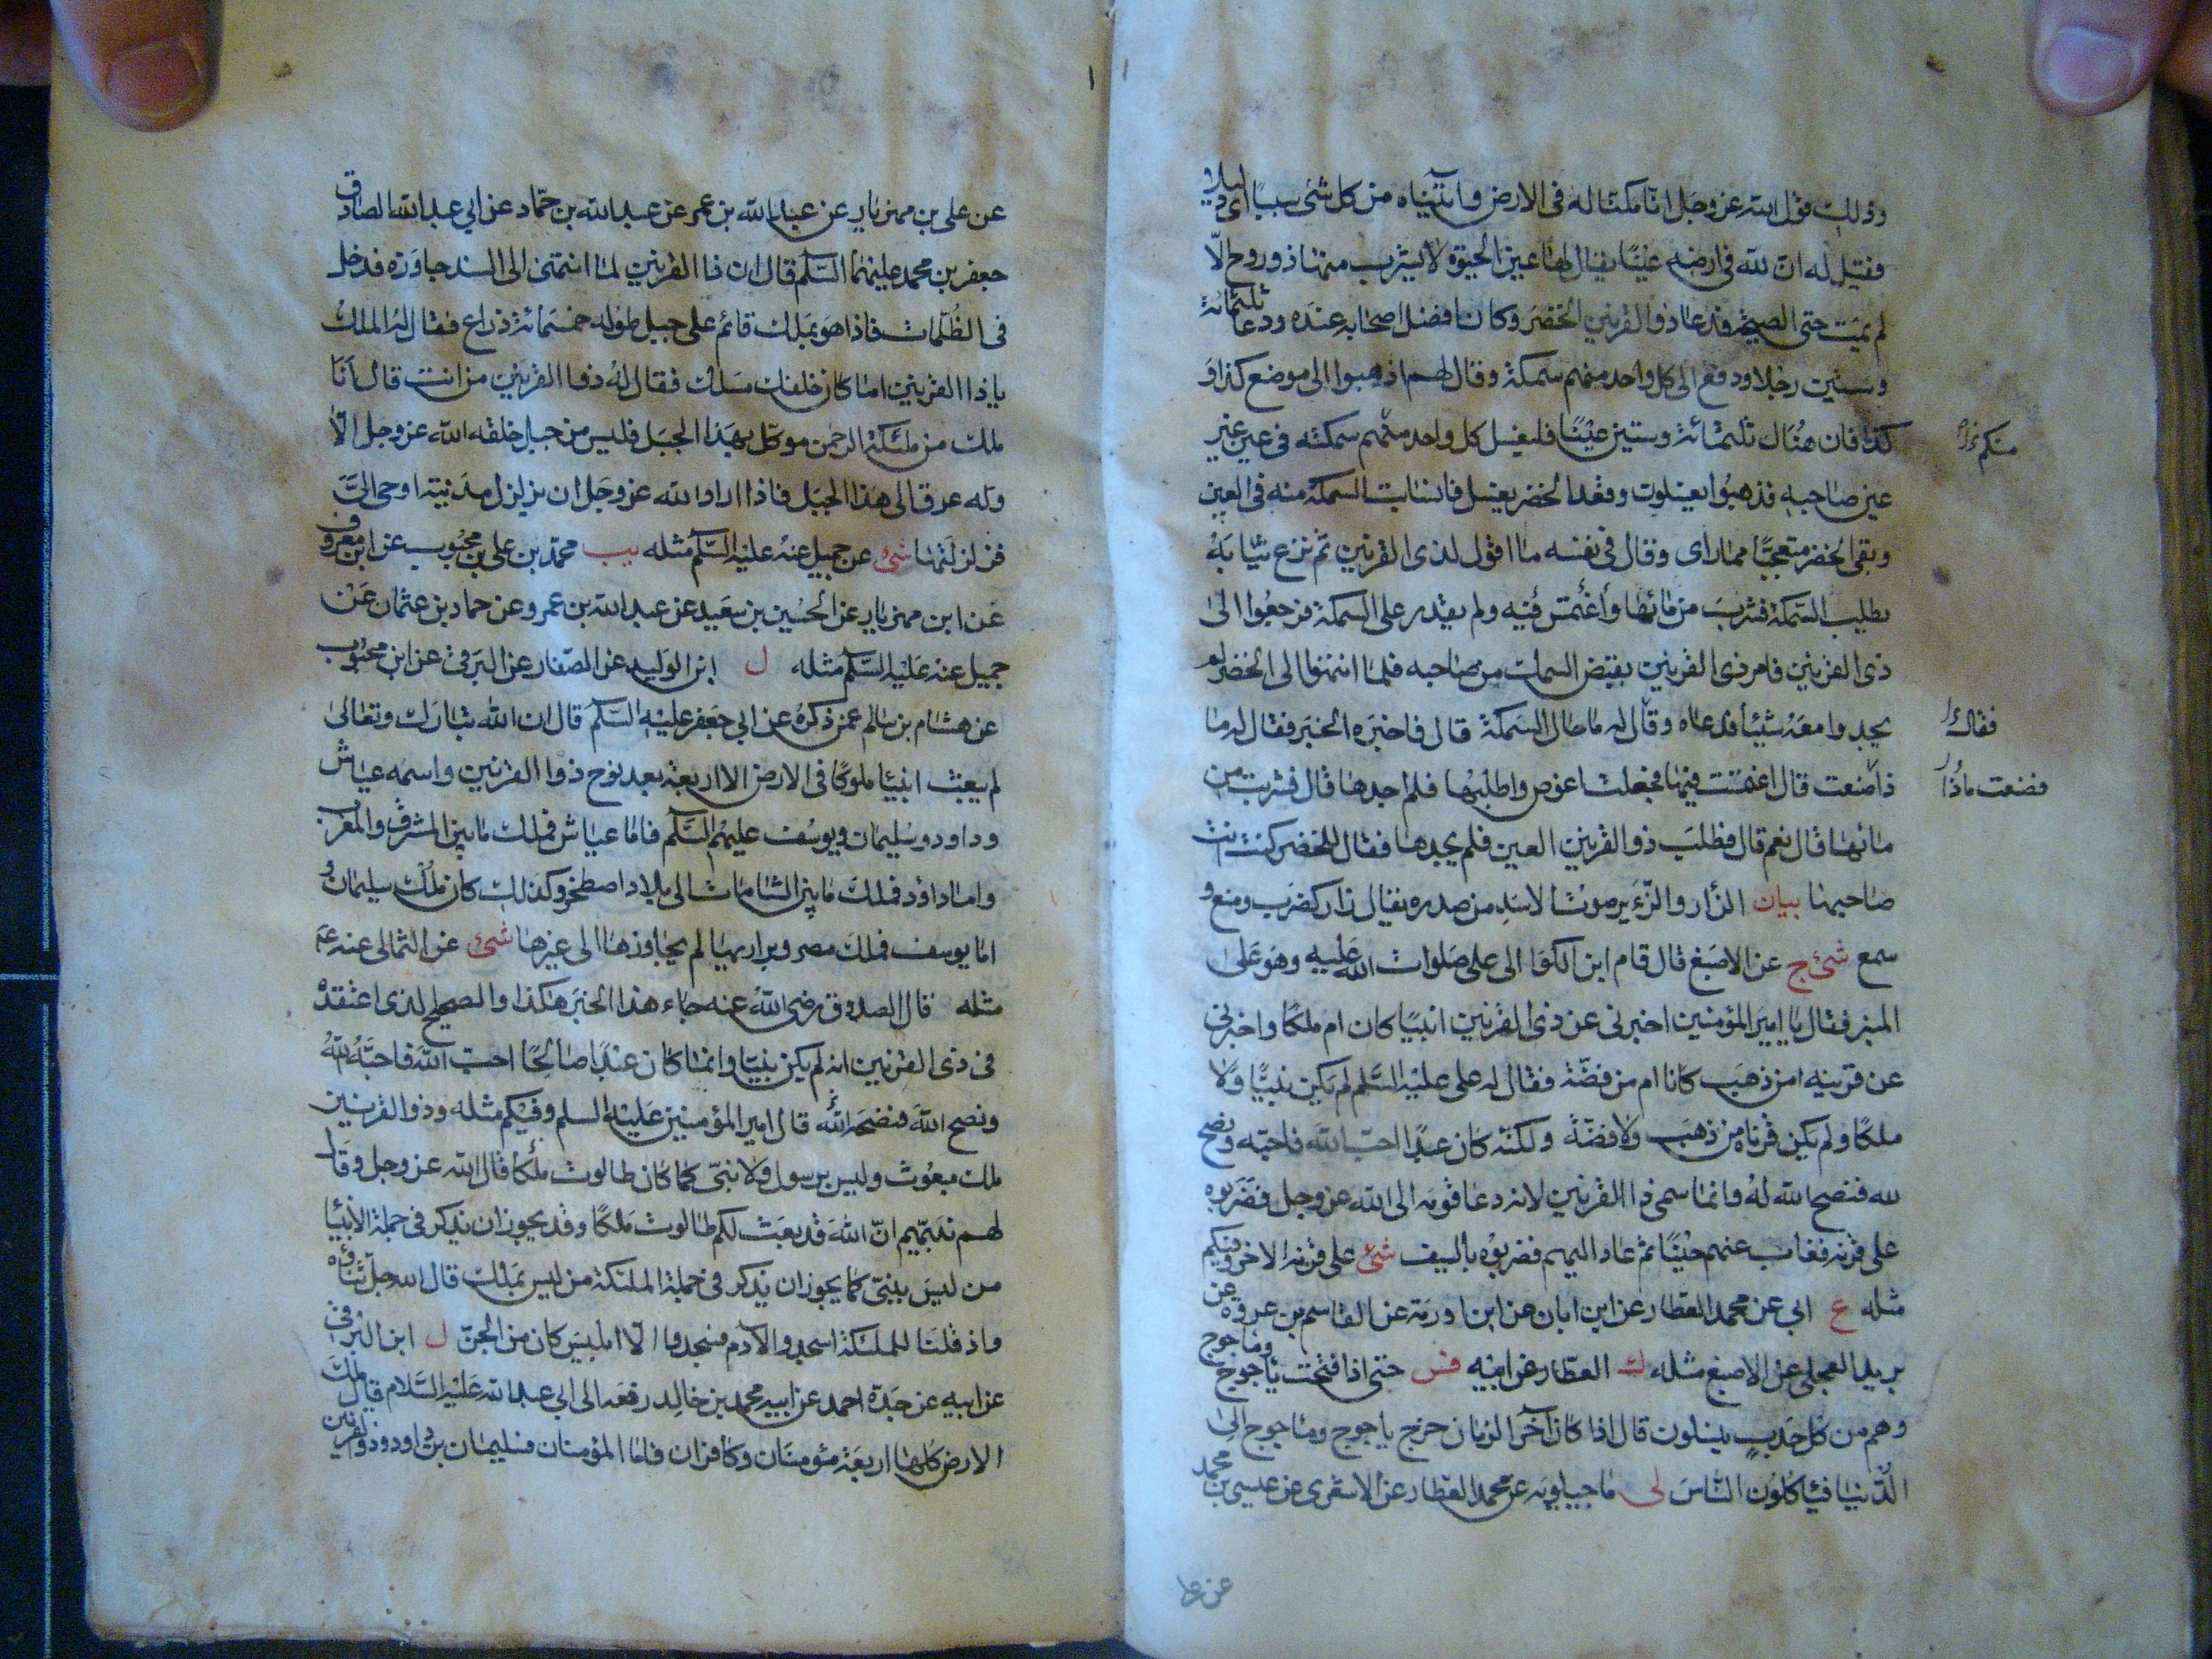 وذلك قول الله عز وجل انا مكنا له فى الارض وآتيناه من كل شئ سببا اى دليلا
فقيل له ان لله فى ارضه عينا يقال لها عين الحيوة لا يشرب منها ذو روح الّا
لم يمت حتى الصيحة فدعا ذو القرنين الخضر وكان افضل اصحابه عنده ودعا ثلثمائة
وستين رجلا ودفع الى كل واحد منهم سمكة وقال لهم اذهبوا الى موضع كذا و
كذا فان هناك ثلثمائة وستين عينا فليغسل كل واحد منهم سمكته فى عين غير
منكم
عين صاحبه فذهبوا يغسلون وقعد الخضر يغسل فانسابت السمكة منه فى العين
وبقى الخضر متعجبا مما راى وقال فى نفسه ما اقول لذى القرنين ثم نزع ثيابه
يطلب السمكة فشرب من مائها واغتمس فيه ولم يقدر على السمكة فرجعوا الى
ذى القرنين فامر ذى القرنين بقبض السمك من صاحبه فلما انتهوا الى الخضر لم
يجدوا معه شيئا فدعاه وقال له ما حال السمكة قال فاخبره الخبر فقال له ما
فقال
ذا صنعت قال اغتمست فيها فجعلت اغوص واطلبها فلم اجدها قال فشربت من
فصنعت ماذا
مائها قال نعم قال فطلب ذو القرنين العين فلم يجدها فقال للخضر كنت انت
صاحبها بيان الزأر والزئير صوت الاسد من صدره يقال زار كضرب ومنع و
سمع شئ ج عن الاصبغ قال قام ابن الكوا الى على صلوات الله عليه وهو على
المنبر فقال يا امير المؤمنين اخبرنى عن ذى القرنين انبيا كان ام ملكا واخبرنى
عن قرنيه امن ذهب كانا ام من فضة فقال له على عليه السلم لم يكن نبيا ولا
ملكا ولم يكن قرناه من ذهب ولا فضة ولكنه كان عبدا احب الله فاحبه ونصح
لله فنصح الله له وانما سمى ذا القرنين لانه دعا قومه الى الله عز وجل فضربوه
على قرنه فغاب عنهم حينا ثم عاد اليهم فضربوه بالسيف شئ على قرنه الاخر وفيكم
مثله ع ابى عن محمد العطار عن ابن ابان عن ابن اورمة عن القاسم بن عروة عن
بريد العجلى عن الاصبغ مثله ك العطار عن ابيه فس حتى اذا فتحت ياجوج وماجوج
وهم من كل حدب ينسلون قال اذا كان آخر الزمان خرج ياجوج وماجوج الى
الدنيا فياكلون الناس لى ماجيلويه عن محمد العطار عن الاشعرى عن عيسى بن محمد
عن على
عن على بن مهزيار عن عبد الله بن عمر عن عبد الله بن حماد عن ابى عبد الله الصادق
جعفر بن محمد عليهما السلم قال ان ذا القرنين لما انتهى الى السد جاوزه فدخل
فى الظلمات فاذا هو بملك قائم على جبل طوله خمسمائة ذراع فقال له الملك
يا ذا القرنين اما كان خلفك مسلك فقال له ذو القرنين من انت قال انا
ملك من ملئكة الرحمن موكل بهذا الجبل فليس من جبل خلقه الله عز وجل الّا
وله عرق الى هذا الجبل فاذا اراد الله عز وجل ان يزلزل مدينة اوحى الىّ
فزلزلتها شئ عن جميل عنه عليه السلم مثله يب محمد بن على بن محبوب عن ابن معروف
عن ابن مهزيار عن الحسين بن سعيد عن عبد الله بن عمرو عن حماد بن عثمان عن
جميل عنه عليه السلم مثله ل ابن الوليد عن الصفار عن البرقى عن ابن محبوب
عن هشام بن سالم عمن ذكره عن ابى جعفر عليه السلم قال ان الله تبارك وتعالى
لم يبعث انبيا ملوكا فى الارض الا اربعة بعد نوح ذو القرنين واسمه عياش
وداود وسليمان ويوسف عليهم السلم فاما عياش فملك ما بين المشرق والمغرب
واما داود فملك ما بين الشامات الى بلاد اصطخر وكذلك كان ملك سليمان و
اما يوسف فملك مصر وبراريها لم يجاوزها الى غيرها شئ عن الثمالى عنه ع
مثله قال الصدوق رضى الله عنه جاء هذا الخبر هكذا والصحيح الذى اعتقده
فى ذى القرنين انه لم يكن نبيا وانما كان عبدا صالحا احب الله فاحبه الله
ونصح الله فنصحه الله قال امير المؤمنين عليه السلم وفيكم مثله وذو القرنين
ملك مبعوث وليس برسول ولا نبى كما كان طالوت ملكا قال الله عز وجل وقال
لهم نبيهم ان الله قد بعث لكم طالوت ملكا وقد يجوز ان يذكر فى جملة الانبيا
من ليس بنبى كما يجوز ان يذكر فى جملة الملئكة من ليس بملك قال الله جل ثناؤه
واذ قلنا للملئكة اسجدوا لآدم فسجدوا الا ابليس كان من الجن ل ابن البرقى
عن ابيه عن جده احمد عن ابيه محمد بن خالد رفعه الى ابى عبد الله عليه السلام قال ملك
الارض كلها اربعة مؤمنان وكافران فاما المؤمنان فسليمان بن داود وذو القرنين